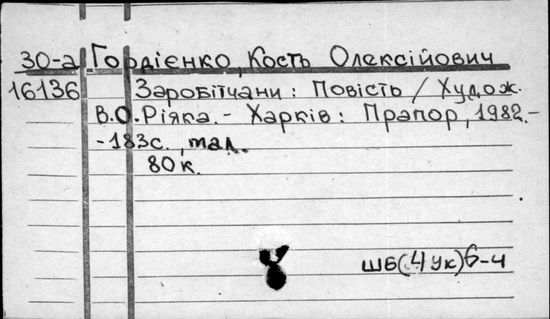 30-а Гордієнко, Кость Олексійович
16136 Заробітчани: Повість / Худож.
В.О.Ріяка.- Харків: Прапор, 1982.-
-183с., мал.
80к.
ШБ(4Ук)6-4